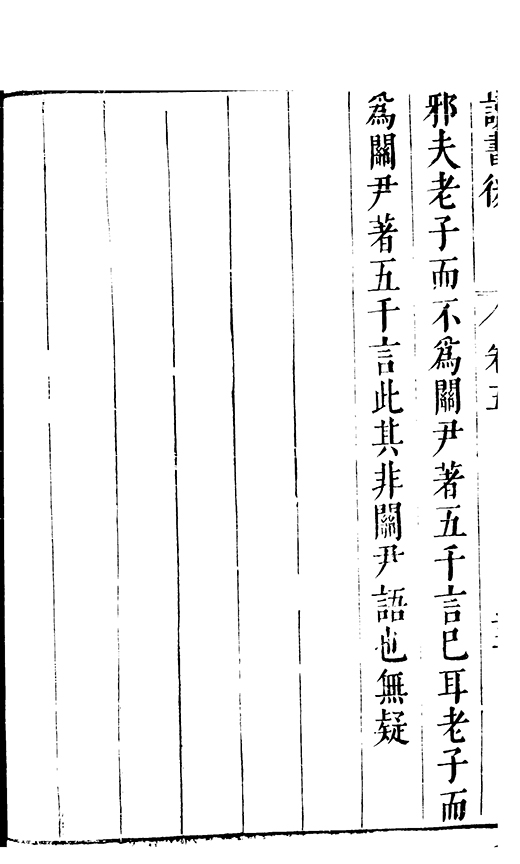 讀書後 卷五
邪夫老子而不爲關尹著五千言已耳老子而
爲關尹著五千言此其非關尹語也無疑